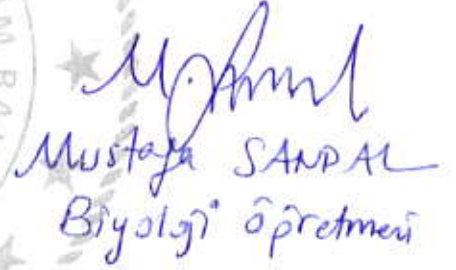 Mustafa SANDAL
Biyoloji öğretmeni